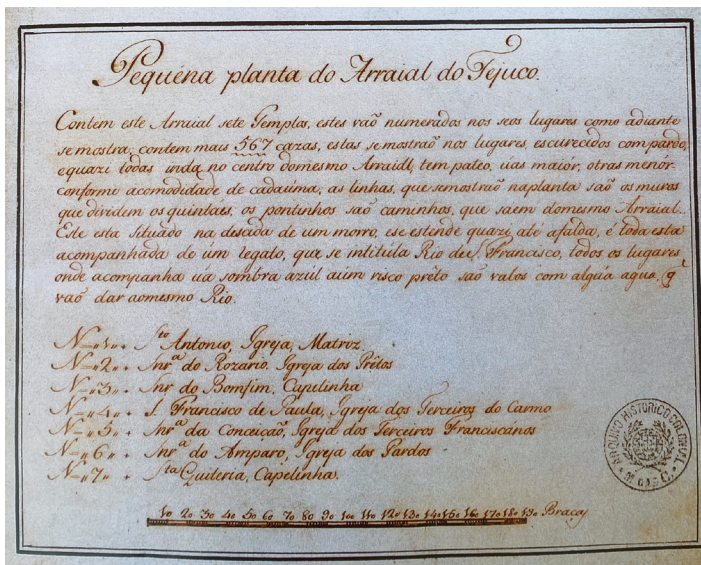 Pequéna planta do Arraial do Tejuco.
Contem este Arraial sete Templos, estes vaõ numerados nos seos lugares como adiante
se mostra, contem mais 567 cazas, estas se mostraõ nos lugares, escurecidos com pardo,
equazi todas inda no centro domesmo Arraial, tem pateo, uas maiór, otras menór.
conforme acomodidade de cadaúma, as linhas, que semostraõ naplanta saõ os muros
que dividem os quintáes, os pontinhos saõ caminhos, que saem domesmo Arraial.
Este esta situado na descida de um morro, ese estende quazi até afalda, é toda esta
acompanhada de úm regato, que se intitúla Rio de S. Francisco, todos os lugares
onde acompanha úa sombra azúl aúm risco prêto saõ valos com algúa agua, q̃
vaõ dar aomesmo Rio.
N=„1„ • Sto Antonio, Igreja, Matriz
N=„2„ • Snra do Rozario, Igreja dos Prêtos
N=„3„ • Snr do Bomfim, Capelinha
N=„4„ • S. Francisco de Paula, Igreja dos Terceiros do Carmo
N=„5„ • Snra da Conceiçaõ, Igreja dos Terceiros Franciscános
N=„6„ • Snra do Amparo, Igreja dos Pardos
N=„7„ • Sta Quiteria, Capelinha.
ARQUIVO HISTÓRICO COLONIAL
10 20 30 40 50 60 70 80 90 100 110 120 130 140 150 160 170 180 190 Braças